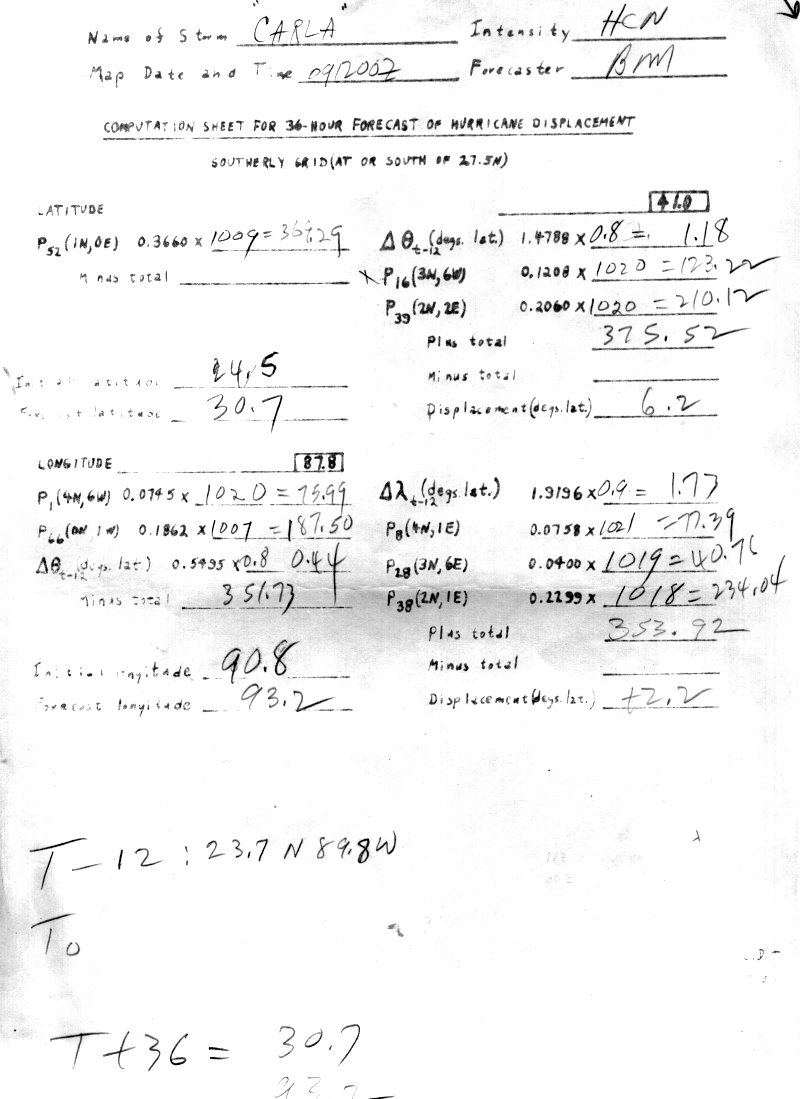 Name of Storm "CARLA" Intensity HCN
Map Date and Time 091200Z Forecaster BMM
COMPUTATION SHEET FOR 36-HOUR FORECAST OF HURRICANE DISPLACEMENT
SOUTHERLY GRID (AT OR SOUTH OF 27.5N)
41.0
LATITUDE
P52 (1N, 0E) 0.3660 × 1009 = 369.29 Δθt-12 (degs. lat.) 1.4788 × 0.8 = 1.18
Minus total P16 (3N, 6W) 0.1208 × 1020 = 123.22
P39 (2N, 2E) 0.2060 × 1020 = 210.12
Plus total 375.52
Initial latitude 24.5 Minus total
Forecast latitude 30.7 Displacement (degs. lat.) 6.2
LONGITUDE 87.8
P1 (4N, 6W) 0.0745 × 1020 = 75.99 Δλt-12 (degs. lat.) 1.9196 × 0.9 = 1.73
P66 (0N 1W) 0.1862 × 1007 = 187.50 P8 (4N, 1E) 0.0758 × 1021 = 77.39
Δθt-12 (degs. lat.) 0.5495 × 0.8 0.44 P28 (3N, 6E) 0.0400 × 1019 = 40.76
Minus total 351.73 P38 (2N, 1E) 0.2299 × 1018 = 234.04
Plus total 353.92
Initial longitude 90.8 Minus total
Forecast longitude 93.2 Displacement (degs. lat.) +2.2
T-12 : 23.7 N 89.8W
T0
T+36 = 30.7
93.2